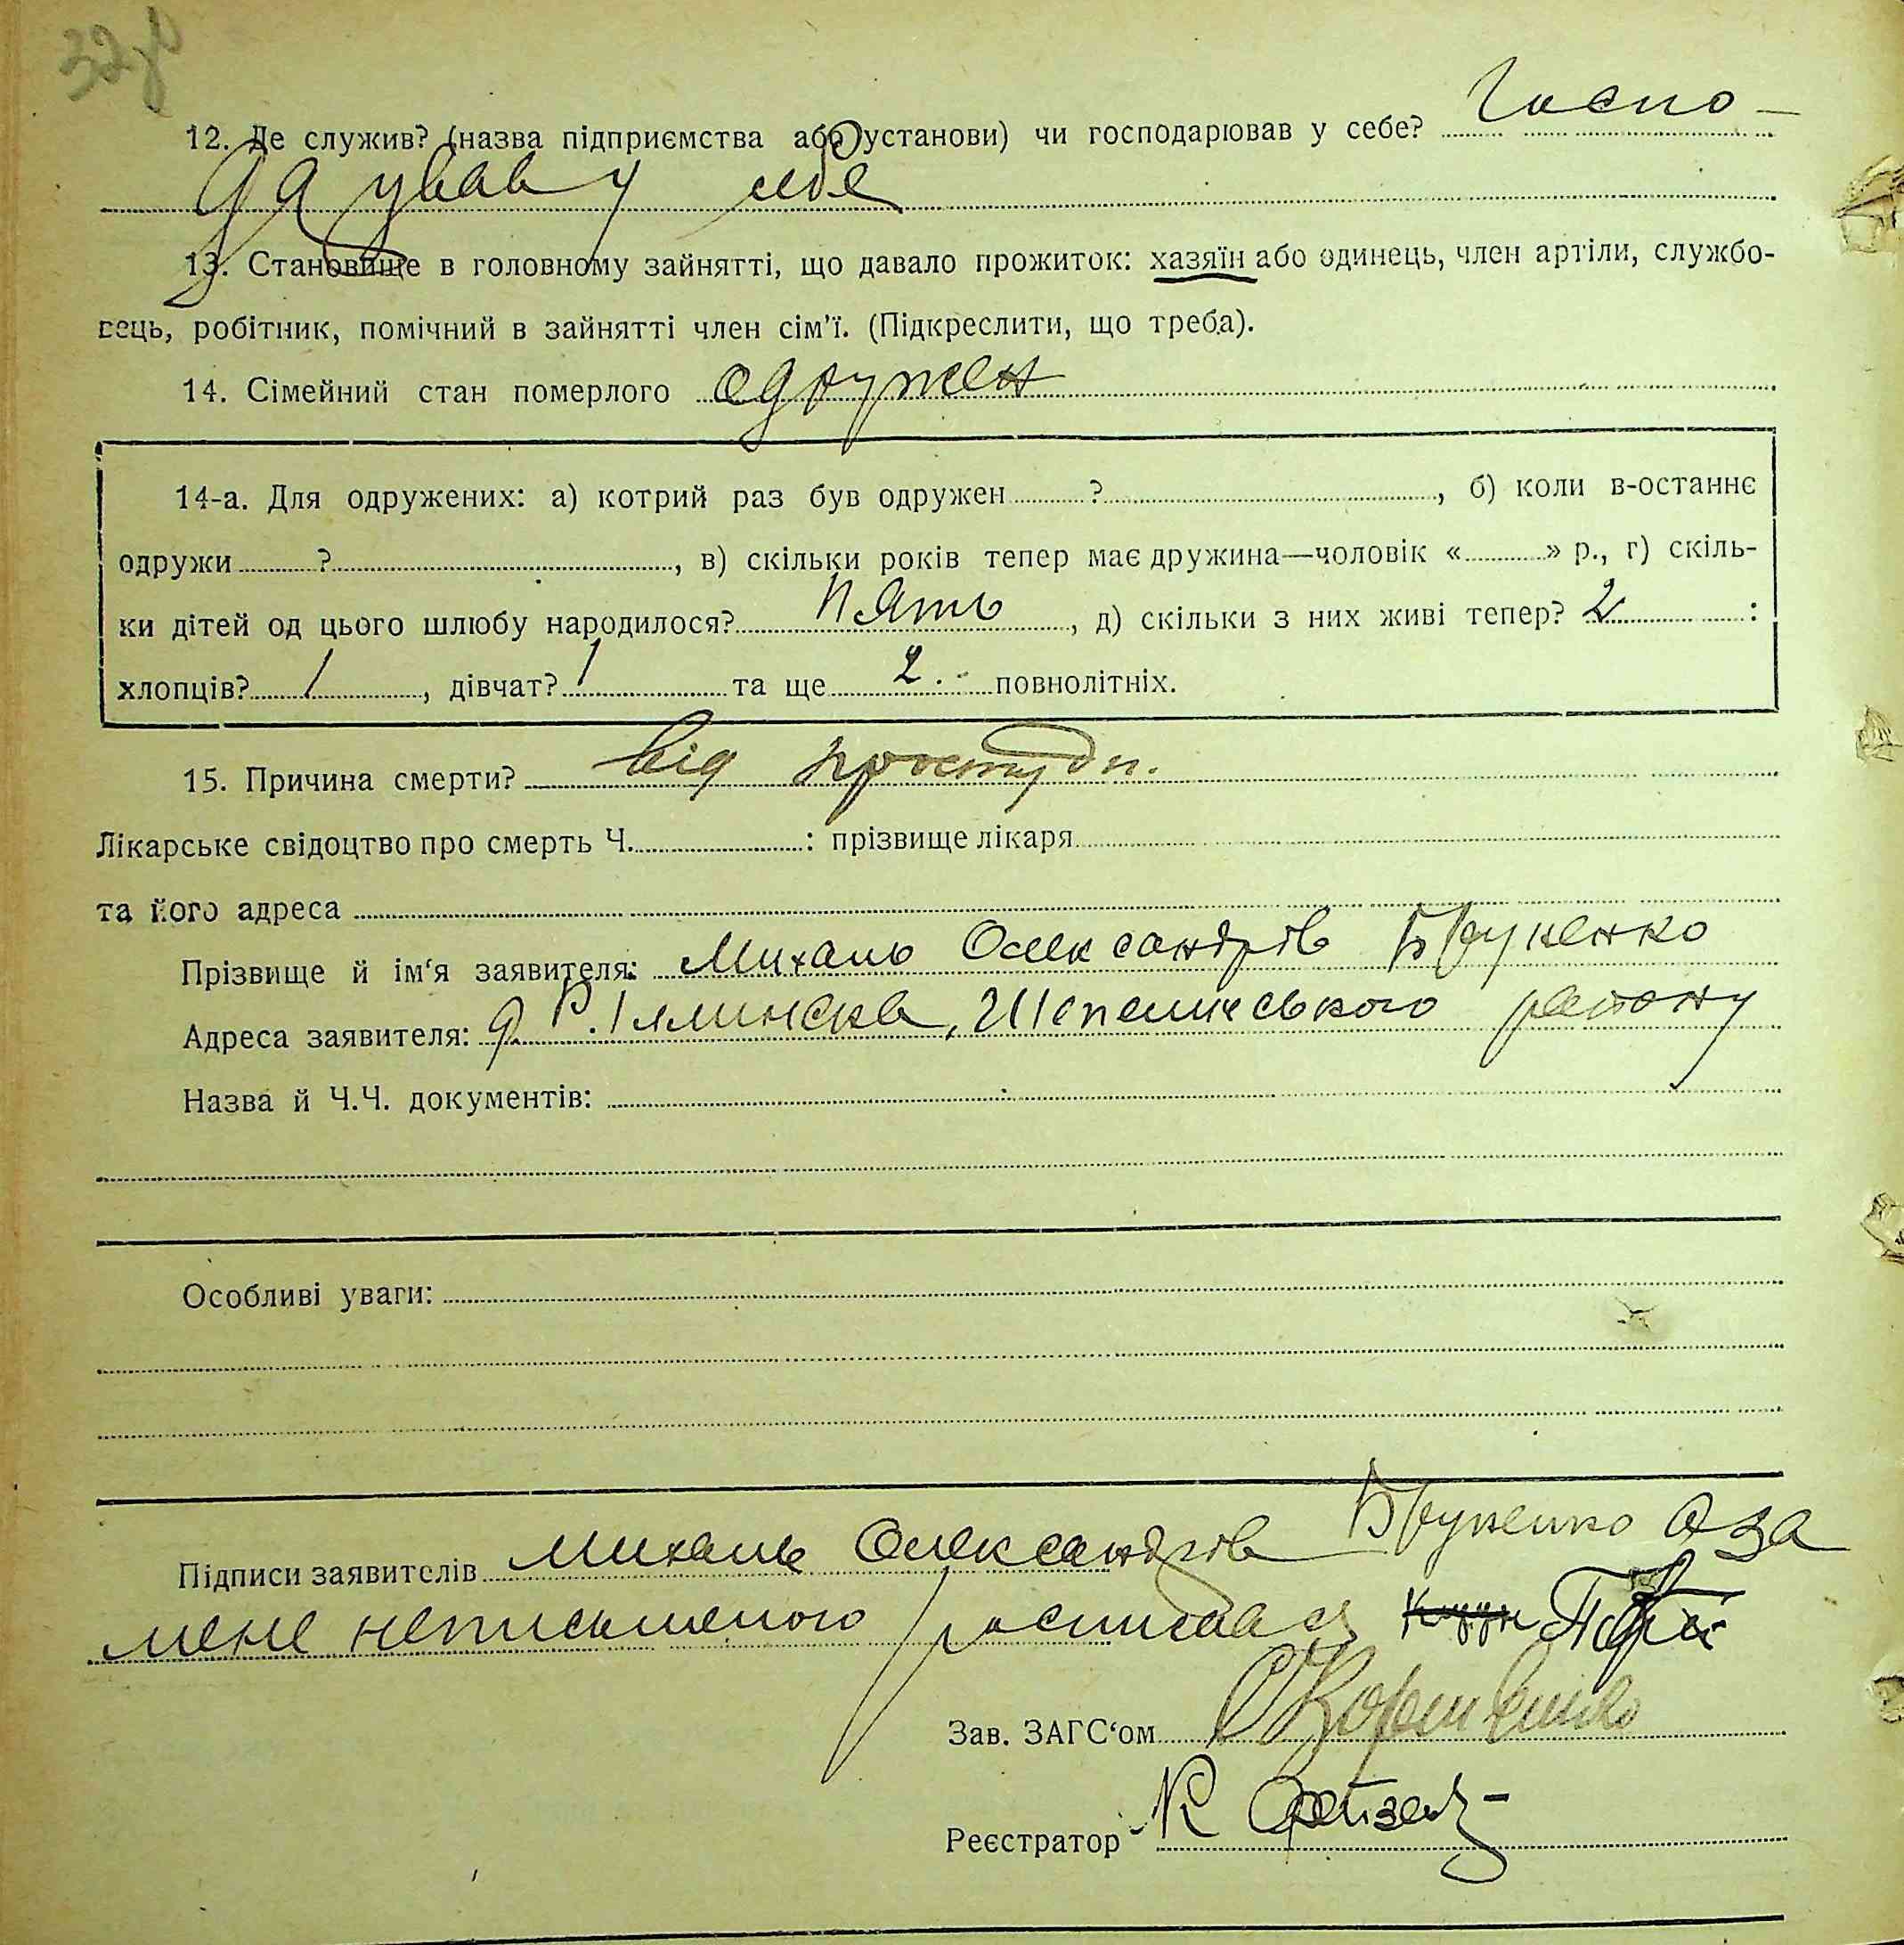 12. Де служив? (назва підприємства або установи) чи господарював у себе? Госпо-
дарував у себе
13. Становище в головному зайнятті, що давало прожиток: хазяїн або одинець, член артіли, службо-
вець, робітник, помічний в зайнятті член сім'ї. (Підкреслити, що треба).
14. Сімейний стан померлого одружен
14-а. Для одружених: а) котрий раз був одружен ? , б) коли в-останнє
одружи ? , в) скільки років тепер має дружина—чоловік « » р., г) скіль-
ки дітей од цього шлюбу народилося? пять , д) скільки з них живі тепер? 2 :
хлопців? 1 , дівчат? 1 та ще 2 повнолітніх.
15. Причина смерти? від простуди.
Лікарське свідоцтво про смерть Ч. : прізвище лікаря
та його адреса
Прізвище й ім'я заявителя: Михаль Олександрів
Адреса заявителя: району
Назва й Ч.Ч. документів:
Особливі уваги:
Підписи заявителів Михаль Олександрів а за
мене неписьменого росписался
Зав. ЗАГС'ом
Реєстратор